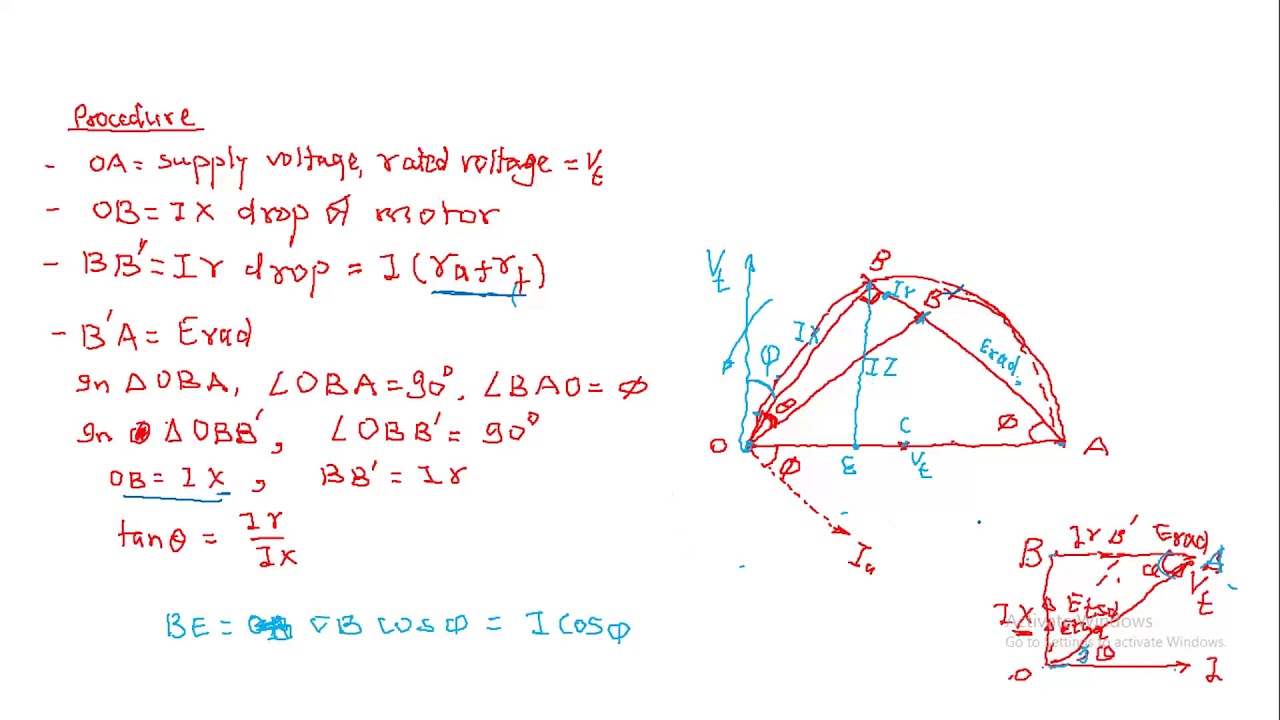 Procedure
- OA = supply voltage, rated voltage = Vt
- OB = IX drop of motor
- BB' = Ir drop = I(ra+rf)
- B'A = Erad
In Δ OBA, ∠OBA = 90°, ∠BAO = φ
In Δ OBB', ∠OBB' = 90°
OB = IX, BB' = Ir
tanθ = Ir/IX
BE = OB cos φ = I cosφ
Vt
B
Ir
B'
IX
φ
IZ
Erad
θ
φ
O
E
C
Vt
A
φ
Ia
B
Ir
B'
Erad
A
Vt
IX
Etsd
Etrd
O
I
Activate Windows
Go to Settings to activate Windows.